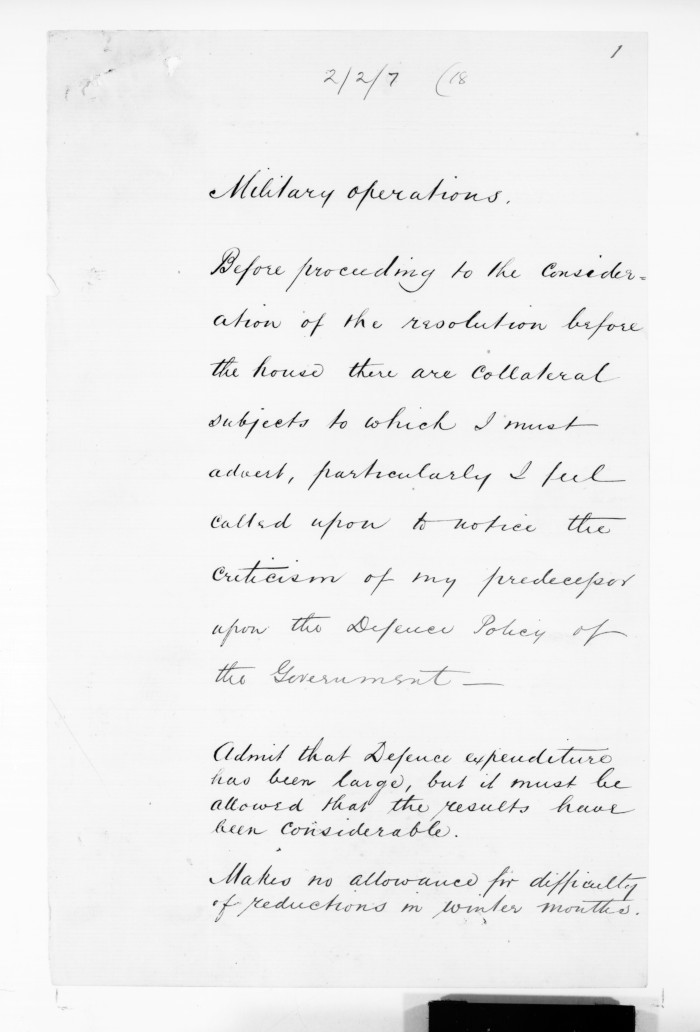 1
2/2/7 (18
Military operations.
Before proceeding to the consider=
ation of the resolution before
the house there are collateral
subjects to which I must
advert, particularly I feel
called upon to notice the
criticism of my predecessor
upon the Defence Policy of
the Government —
Admit that Defence expenditure
has been large, but it must be
allowed that the results have
been considerable.
Makes no allowance for difficulty
of reductions in winter months.